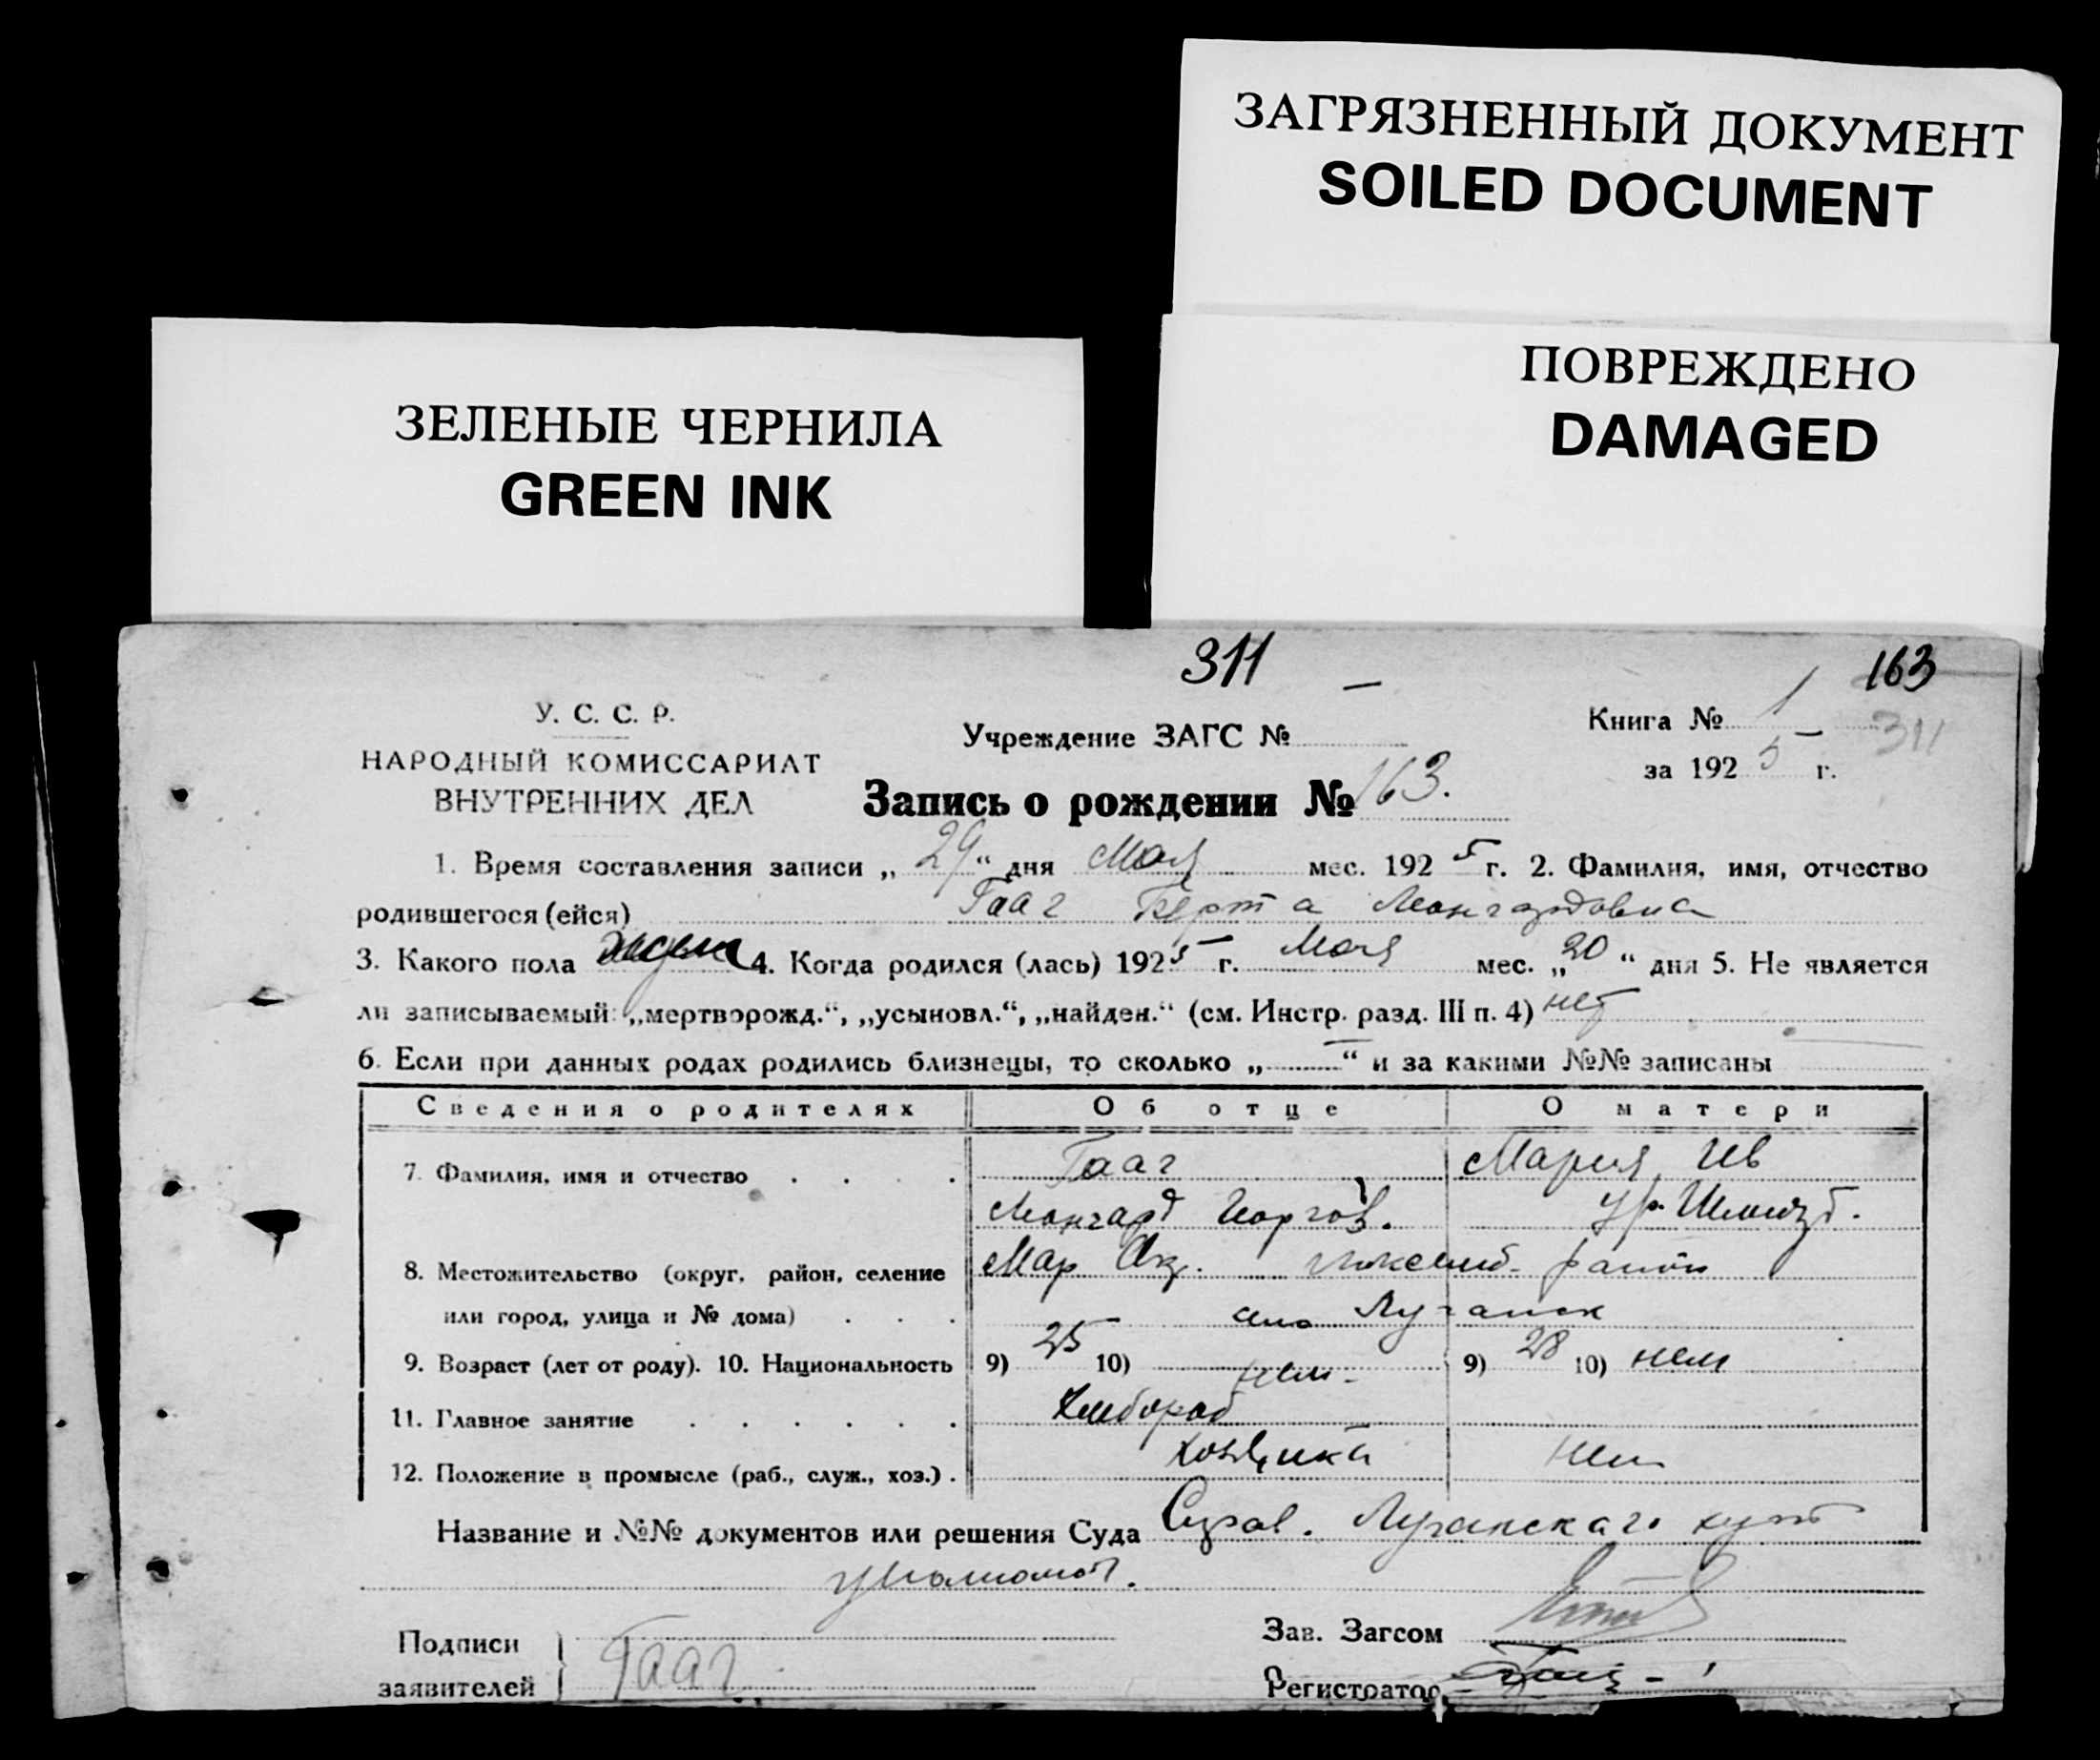 ЗАГРЯЗНЕННЫЙ ДОКУМЕНТ
SOILED DOCUMENT
ПОВРЕЖДЕНО
DAMAGED
ЗЕЛЕНЫЕ ЧЕРНИЛА
GREEN INK
311 163
У. С. С. Р.
НАРОДНЫЙ КОМИССАРИАТ
ВНУТРЕННИХ ДЕЛ
Учреждение ЗАГС №
Книга № 1
311
за 1925 г.
Запись о рождении № 163.
1. Время составления записи „29“ дня Мая мес. 1925 г. 2. Фамилия, имя, отчество
родившегося (ейся) Гааг Берта
3. Какого пола 4. Когда родился (лась) 1925 г. Мая мес. „20“ дня 5. Не является
ли записываемый: „мертворожд.“, „усыновл.“, „найден.“ (см. Инстр. разд. III п. 4) нет
6. Если при данных родах родились близнецы, то сколько „—“ и за какими №№ записаны
Сведения о родителях Об отце О матери
7. Фамилия, имя и отчество Гааг Мария Ив
Георгов. ур. Шмидт.
8. Местожительство (округ, район, селение Мар Ок. район
или город, улица и № дома) село Луганск
9. Возраст (лет от роду). 10. Национальность 9) 25 10) нем. 9) 28 10) нем
11. Главное занятие Хлебороб
12. Положение в промысле (раб., служ., хоз.)
Название и №№ документов или решения Суда Справ. Луганского
уполномоч.
Подписи
заявителей Гааг
Зав. Загсом
Регистратор